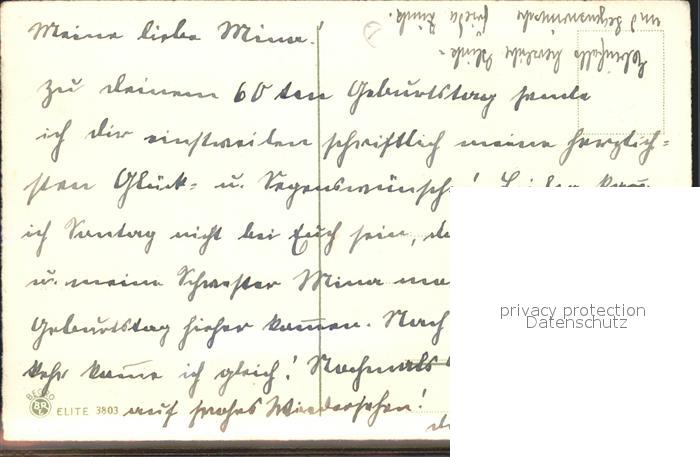 Meine liebe Mina!
Zu deinem 60ten Geburtstag sende
ich dir einstweilen schriftlich meine herzlich=
sten Glück= u. Segenswünsche! Leider kann
ich Sontag nicht bei Euch sein, da
u. meine Schwester Mina
Geburtstag hieher komen. Nach
kehr kome ich gleich! Nochmals
auf frohes Wiedersehen!
Ebenfalls herzliche Glück=
und Segenswünsche
privacy protection
Datenschutz
BEBRO
BR
ELITE 3803